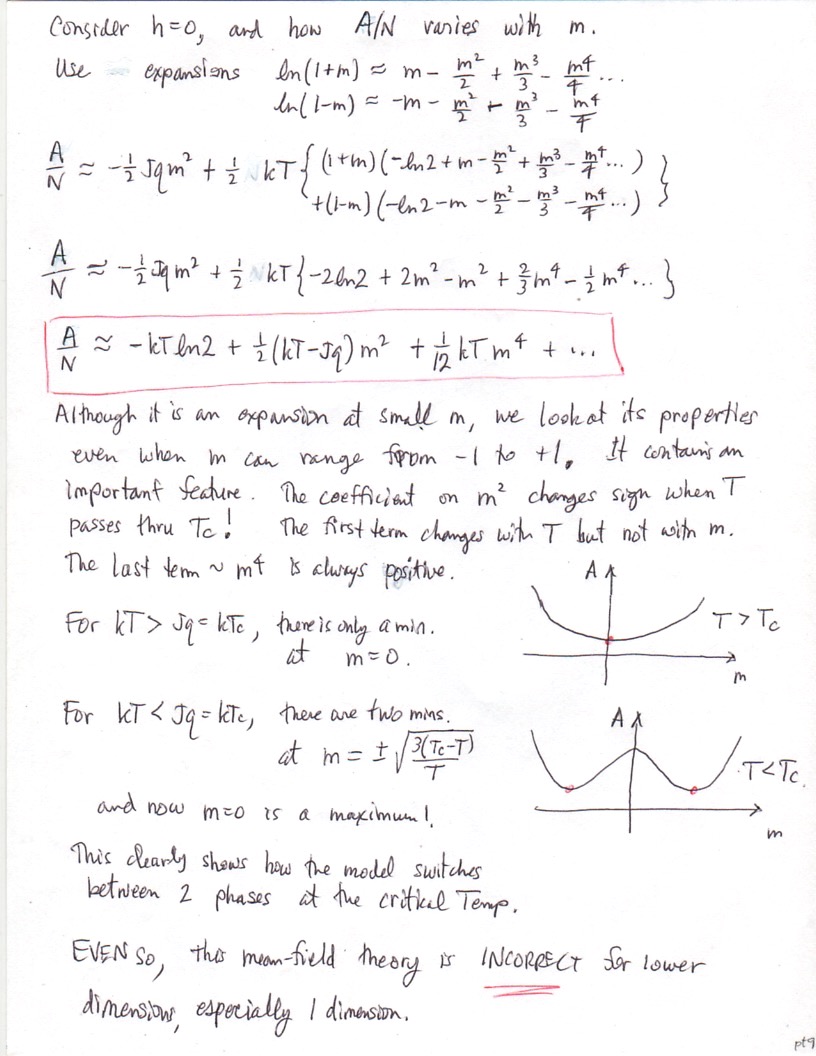 Consider h=0, and how A/N varies with m.
Use expansions ln(1+m) ≈ m - m²/2 + m³/3 - m⁴/4 ...
ln(1-m) ≈ -m - m²/2 - m³/3 - m⁴/4
A/N ≈ -½Jqm² + ½ kT{ (1+m)(-ln2 + m - m²/2 + m³/3 - m⁴/4 ...)
+(1-m)(-ln2 - m - m²/2 - m³/3 - m⁴/4 ...) }
A/N ≈ -½Jqm² + ½ kT{-2ln2 + 2m² - m² + ⅔m⁴ - ½m⁴ ... }
A/N ≈ -kT ln2 + ½(kT-Jq)m² + 1/12 kTm⁴ + ...
Although it is an expansion at small m, we look at its properties
even when m can range from -1 to +1. It contains an
important feature. The coefficient on m² changes sign when T
passes thru Tc! The first term changes with T but not with m.
The last term ~ m⁴ is always positive.
A
For kT > Jq = kTc, there is only a min.
at m=0.
T > Tc
m
For kT < Jq = kTc, there are two mins.
at m = ±√(3(Tc-T)/T)
A
T<Tc.
m
and now m=0 is a maximum!
This clearly shows how the model switches
between 2 phases at the critical Temp.
EVEN SO, this mean-field theory is INCORRECT for lower
dimensions, especially 1 dimension.
pt9